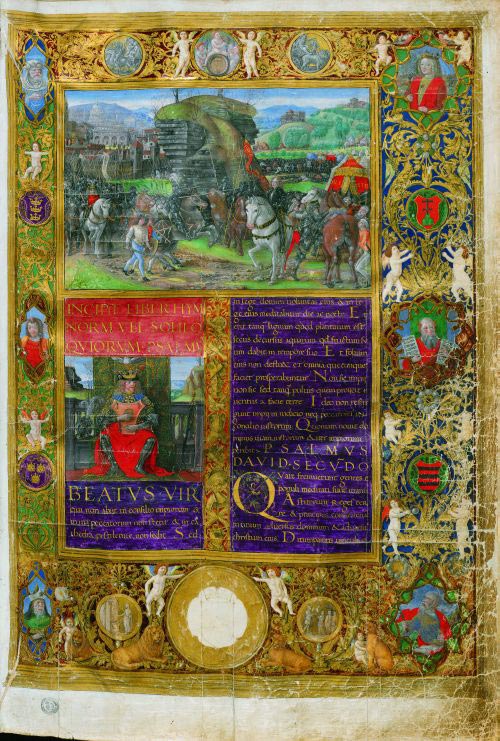 INCIPIT LIBER HYM
NORVM VEL SOLILO
QVIORVM PSALMVS
BEATVS VIR
qui non abiit in consilio impiorum & in
via peccatorum non stetit & in ca
thedra pestilentie non sedit. Sed
in lege domini voluntas eius & in le
ge eius meditabitur die ac nocte. Et
erit tanq lignum quod plantatum est
secus decursus aquarum qd fructum su
um dabit in tempore suo Et folium
eius non defluet & omnia quecunque
faciet prosperabuntur. Non sic impii
non sic sed tanq pulvis quem proiicit
ventus a facie terre. Ideo non resur
gunt impii in iudicio neq peccatores in
consilio iustorum. Quoniam novit do
minus viam iustorum & iter impiorum
peribit. PSALMVS
DAVID SECVDO
Quare fremuerunt gentes &
populi meditati sunt inania
Astiterunt Reges ter
re & principes convenerunt
in unum adversus dominum & adversus
christum eius. Dirumpamus vincula